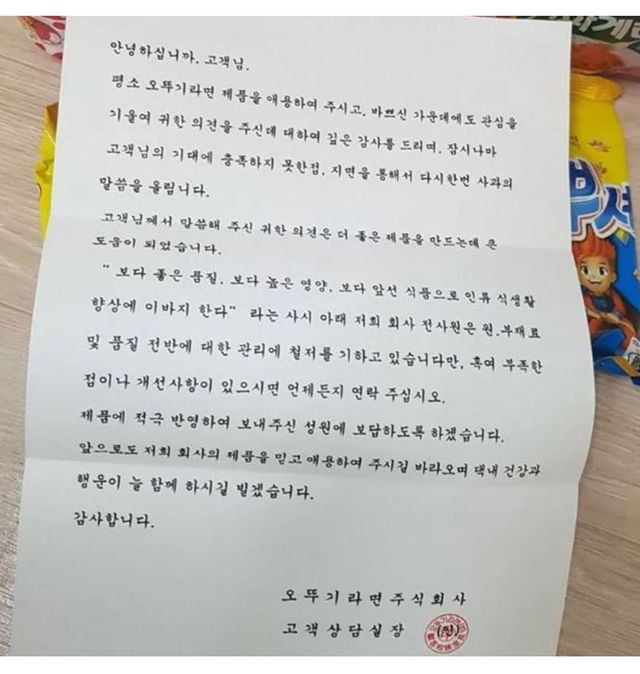 안녕하십니까. 고객님.
평소 오뚜기라면 제품을 애용하여 주시고, 바쁘신 가운데에도 관심을
기울여 귀한 의견을 주신데 대하여 깊은 감사를 드리며, 잠시나마
고객님의 기대에 충족하지 못한점, 지면을 통해서 다시한번 사과의
말씀을 올립니다.
고객님께서 말씀해 주신 귀한 의견은 더 좋은 제품을 만드는데 큰
도움이 되었습니다.
" 보다 좋은 품질, 보다 높은 영양, 보다 앞선 식품으로 인류 식생활
향상에 이바지 한다" 라는 사시 아래 저희 회사 전사원은 원.부재료
및 품질 전반에 대한 관리에 철저를 기하고 있습니다만, 혹여 부족한
점이나 개선사항이 있으시면 언제든지 연락 주십시오.
제품에 적극 반영하여 보내주신 성원에 보답하도록 하겠습니다.
앞으로도 저희 회사의 제품을 믿고 애용하여 주시길 바라오며 댁내 건강과
행운이 늘 함께 하시길 빌겠습니다.
감사합니다.
오뚜기라면주식회사
고객상담실장 (인)
뿌셔